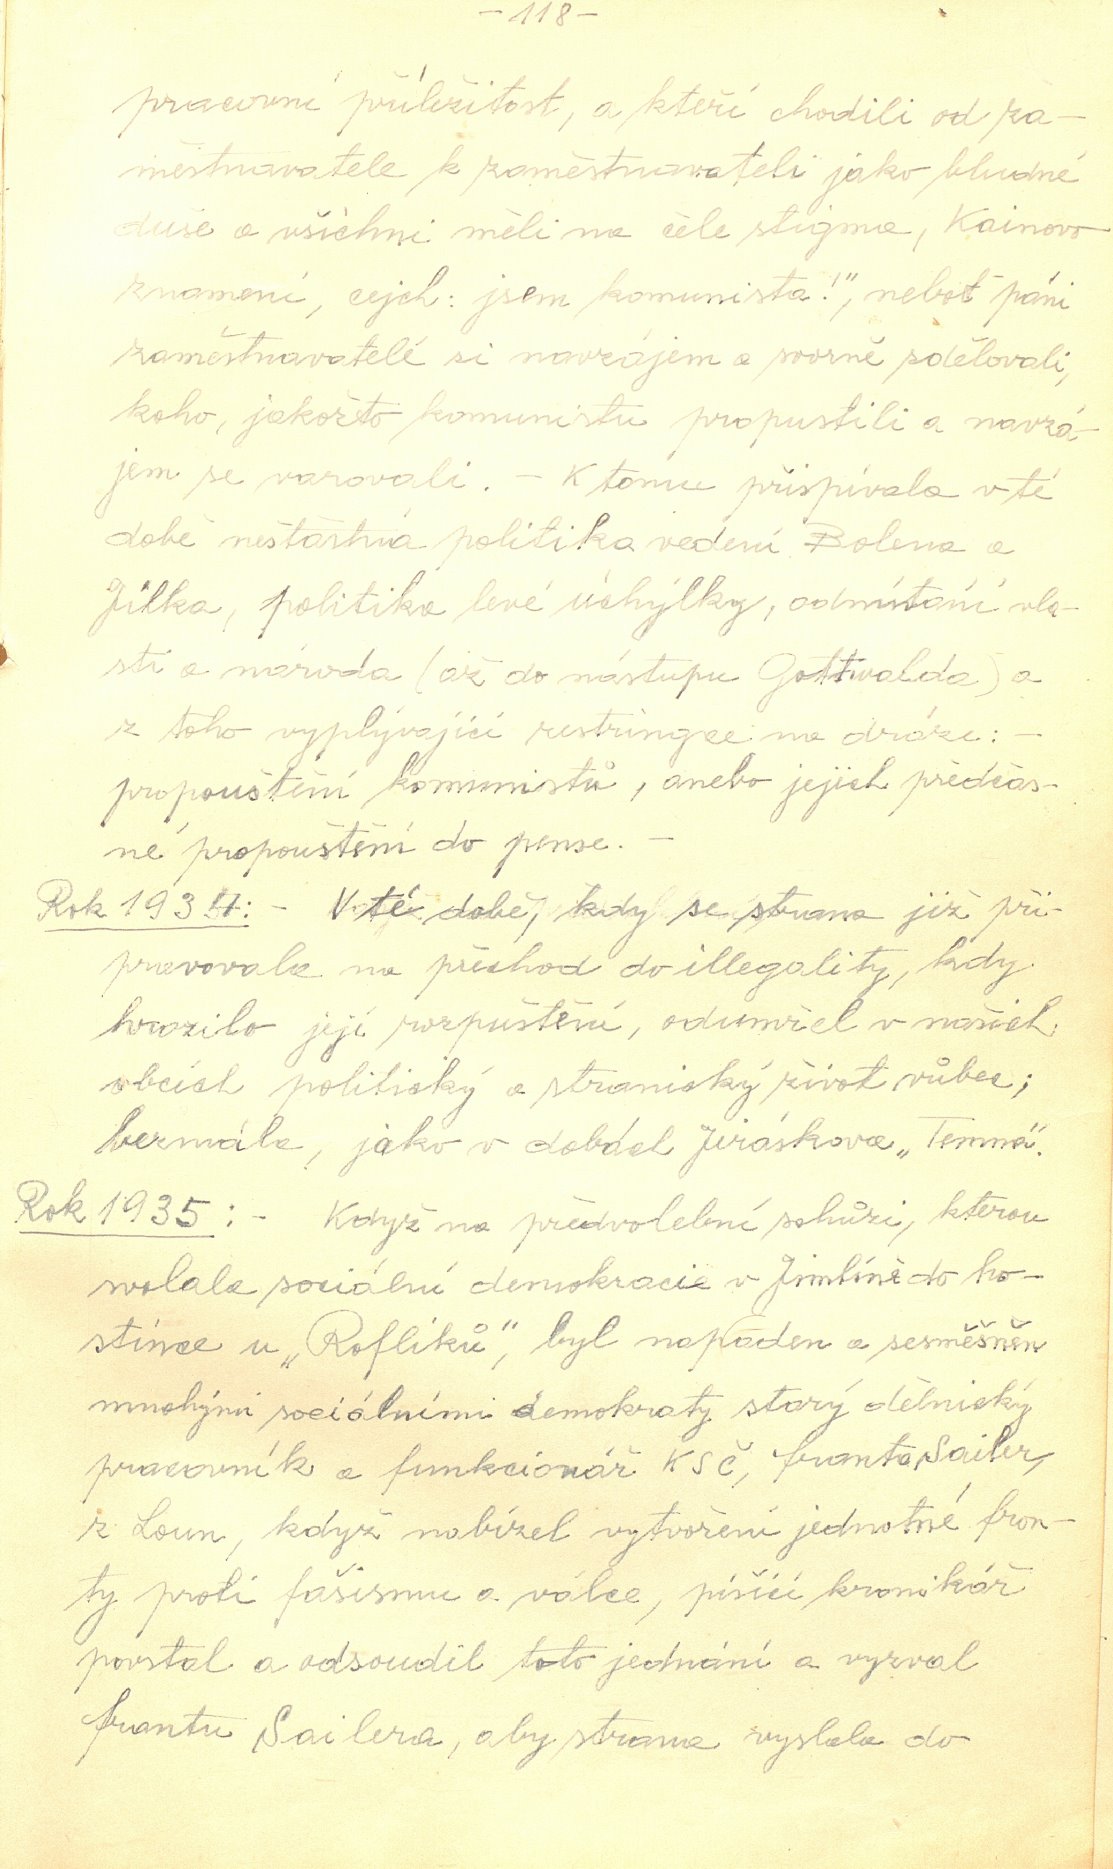 - 118 -
pracovní příležitost, a kteří chodili od za-
městnavatele k zaměstnavateli jako bludné
duše a všichni měli na čele stigma, Kainovo
znamení, cejch: jsem komunista!", neboť páni
zaměstnavatelé si navzájem a svorně sdělovali,
koho, jakožto komunistu propustili a navzá-
jem se varovali. - K tomu přispívala v té
době nešťastná politika vedení Bolena a
Jílka, politika levé úchylky, odmítání vla-
sti a národa (až do nástupu Gottwalda) a
z toho vyplývající restringce na dráze: -
propouštění komunistů, anebo jejich předčas-
né propouštění do pense. -
Rok 1934: - V té době, kdy se strana již při-
pravovala na přechod do illegality, kdy
hrozilo její rozpuštění, odumřel v našich
obcích politický a stranický život vůbec;
bezmála, jako v dobách Jiráskova „Temna".
Rok 1935: - Když na předvolební schůzi, kterou
svolala sociální demokracie v Jimlíně do ho-
stince u „Roflíků", byl napaden a sesměšněn
mnohými sociálními demokraty starý dělnický
pracovník a funkcionář KSČ, franta Sailer,
z Loun, když nabízel vytvoření jednotné fron-
ty proti fašismu a válce, píšící kronikář
povstal a odsoudil toto jednání a vyzval
frantu Sailera, aby strana vyslala do